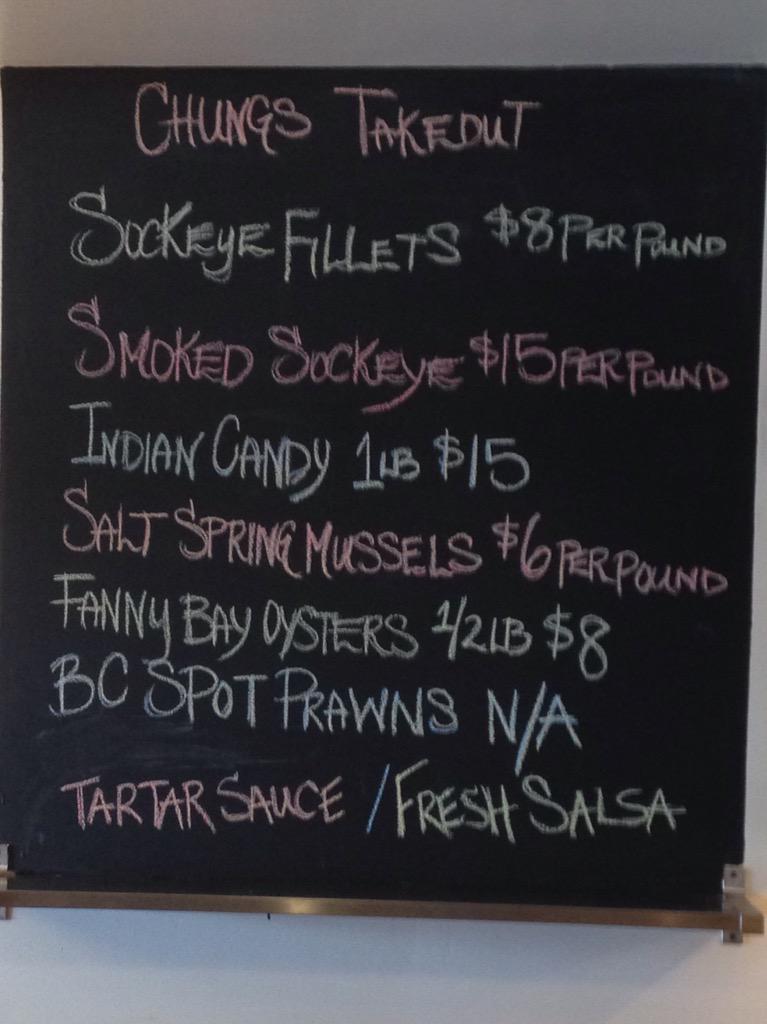 CHUNGS TAKEOUT
SOCKEYE FILLETS $8 PER POUND
SMOKED SOCKEYE $15 PER POUND
INDIAN CANDY 1LB $15
SALT SPRING MUSSELS $6 PER POUND
FANNY BAY OYSTERS 1/2LB $8
BC SPOT PRAWNS N/A
TARTAR SAUCE / FRESH SALSA